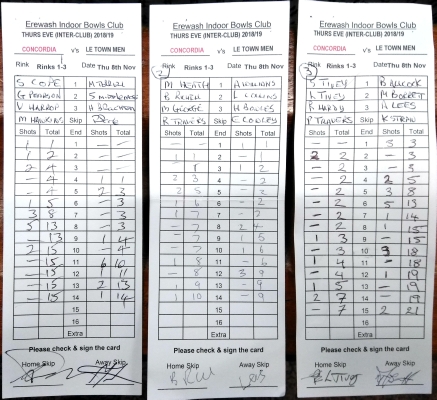 Erewash Indoor Bowls Club
THURS EVE (INTER-CLUB) 2018/19
CONCORDIA v's LE TOWN MEN
Rink Rinks 1-3 Date Thu 8th Nov
S COPE 1
G 2
V HARROP 3
M HAWKINS Skip
Shots Total End Shots Total
1 1 1 — —
1 2 2 — —
2 4 3 — —
— 4 4 1 1
— 4 5 2 3
1 5 6 — 3
3 8 7 — 3
5 13 8 — 3
— 13 9 1 4
2 15 10 — 4
— 15 11 6 10
— 15 12 1 11
— 15 13 2 13
— 15 14 1 14
15
16
Extra
Please check & sign the card
Home Skip Away Skip
Erewash Indoor Bowls Club
THURS EVE (INTER-CLUB) 2018/19
CONCORDIA v's LE TOWN MEN
Rink 2 Rinks 1-3 Date Thu 8th Nov
M HEATH 1
B 2
M GEORGE 3 H BOWLES
R TRAVERS Skip C COOLEY
Shots Total End Shots Total
1 — —
1 1 2 — 1
3 1 2
3 4 — 2
2 5 5 — 2
1 6 6 — 2
1 7 7 — 2
— 7 8 2 4
— 7 9 1 5
— 7 10 1 6
1 8 11 — 6
— 8 12 3 9
1 9 13 — 9
1 10 14 — 9
15
16
Extra
Please check & sign the card
Home Skip Away Skip
Erewash Indoor Bowls Club
THURS EVE (INTER-CLUB) 2018/19
CONCORDIA v's LE TOWN MEN
Rink 3 Rinks 1-3 Date Thu 8th Nov
S TIVEY 1
TIVEY 2
HARDY 3 A LEES
P TRAVERS Skip K STRAW
Shots Total End Shots Total
— — 1 3 3
2 2 2 — 3
— 2 3 — 3
— 2 4 2 5
— 2 5 3 8
— 2 6 5 13
— 2 7 1 14
— 2 8 1 15
1 3 9 — 15
— 3 10 3 18
1 4 11 — 18
— 4 12 1 19
1 5 13 — 19
2 7 14 — 19
— 7 15 2 21
16
Extra
Please check & sign the card
Home Skip Away Skip